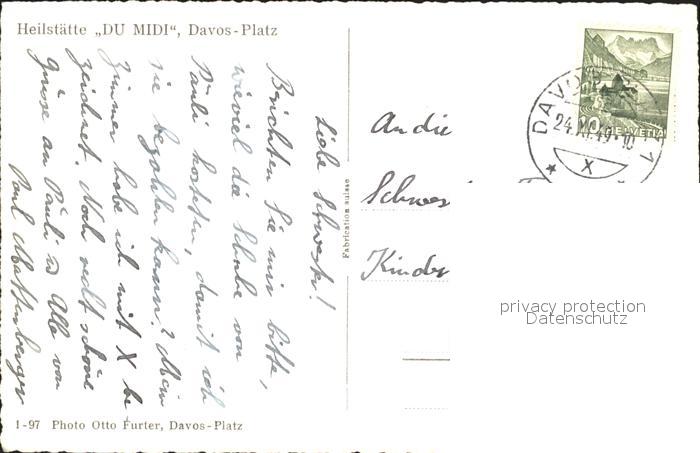 Heilstätte „DU MIDI“, Davos-Platz
Liebe Schwester!
Berichten Sie mir bitte,
wieviel die Schuhe von
Päuli kosten, damit ich
sie bezahlen kann? Mein
Zimmer habe ich mit X be
zeichnet. Noch recht schöne
Grüsse an Päuli u Alle von
Paul Mattenberger
1-97 Photo Otto Furter, Davos-Platz
Fabrication suisse
An die
Schwes
Kinder
10 HELVETIA
DAVOS
24. 49-10
X
1
privacy protection
Datenschutz